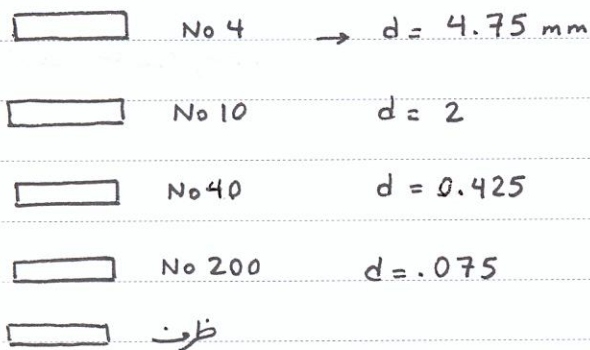 No 4 → d = 4.75 mm
No 10 d = 2
No 40 d = 0.425
No 200 d = .075
ظرف